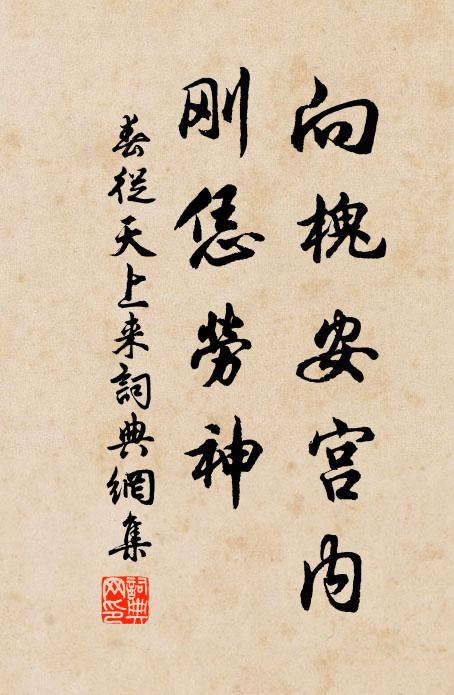 向槐安宫内
刚恁劳神
春从天上来詞典網集
詞典网印